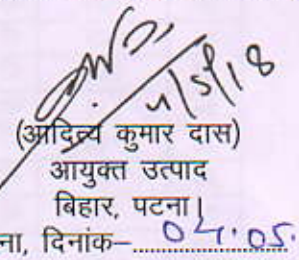 4/5/18
(आदित्य कुमार दास)
आयुक्त उत्पाद
बिहार, पटना।
ना, दिनांक– 04.05.